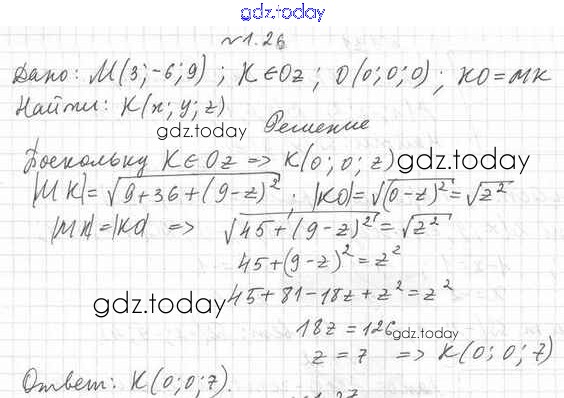 gdz.today
№1.26
Дано: M(3;-6;9) ; K∈Oz ; O(0;0;0) ; KO=MK
Найти: K(x; y; z)
gdz.today
Решение
Поскольку K∈Oz => K(0; 0; z) gdz.today
|MK|=√(9+36+(9-z)²) ; |KO|=√((0-z)²)=√z²
|MK|=|KO| => √(45+(9-z)²)=√z²
45+(9-z)²=z²
gdz.today 45+81-18z+z²=z²
18z=126 gdz.today
z=7 => K(0; 0; 7)
Ответ: K(0;0;7).
1.27